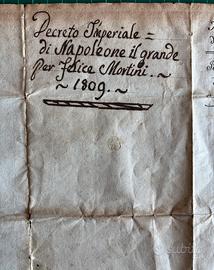 Decreto Imperiale =
di Napoleone il grande
per Felice Mortini. ~
~ 1809. ~
subito